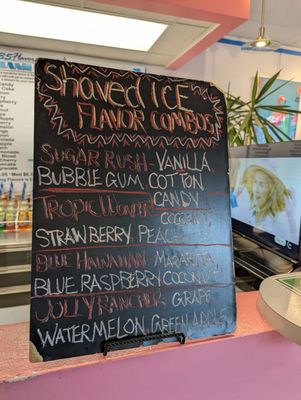 55 Flavor
Shaved ICE
FLAVOR COMBOS
SUGAR RUSH - VANILLA
BUBBLE GUM, COTTON
CANDY
COCONUT
STRAWBERRY, PEACH
BLUE HAWAIIAN - MARGARITA
BLUE RASPBERRY COCONUT
JOLLY RANCHER GRAPE
WATERMELON, GREEN APPLE